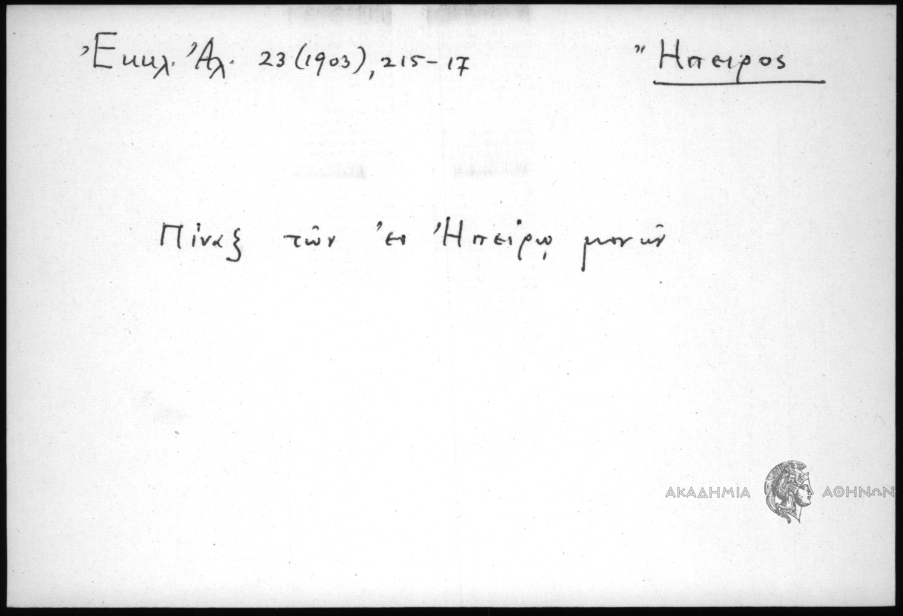 Ἐκκλ. Ἀλ. 23 (1903), 215-17
Ἤπειρος
Πίναξ τῶν ἐν Ἠπείρῳ μονῶν
ΑΚΑΔΗΜΙΑ ΑΘΗΝΩΝ